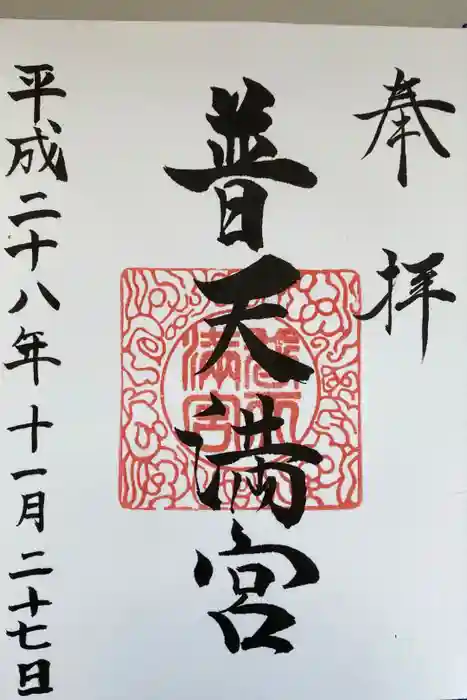 奉拝
普天満宮
平成二十八年十一月二十七日